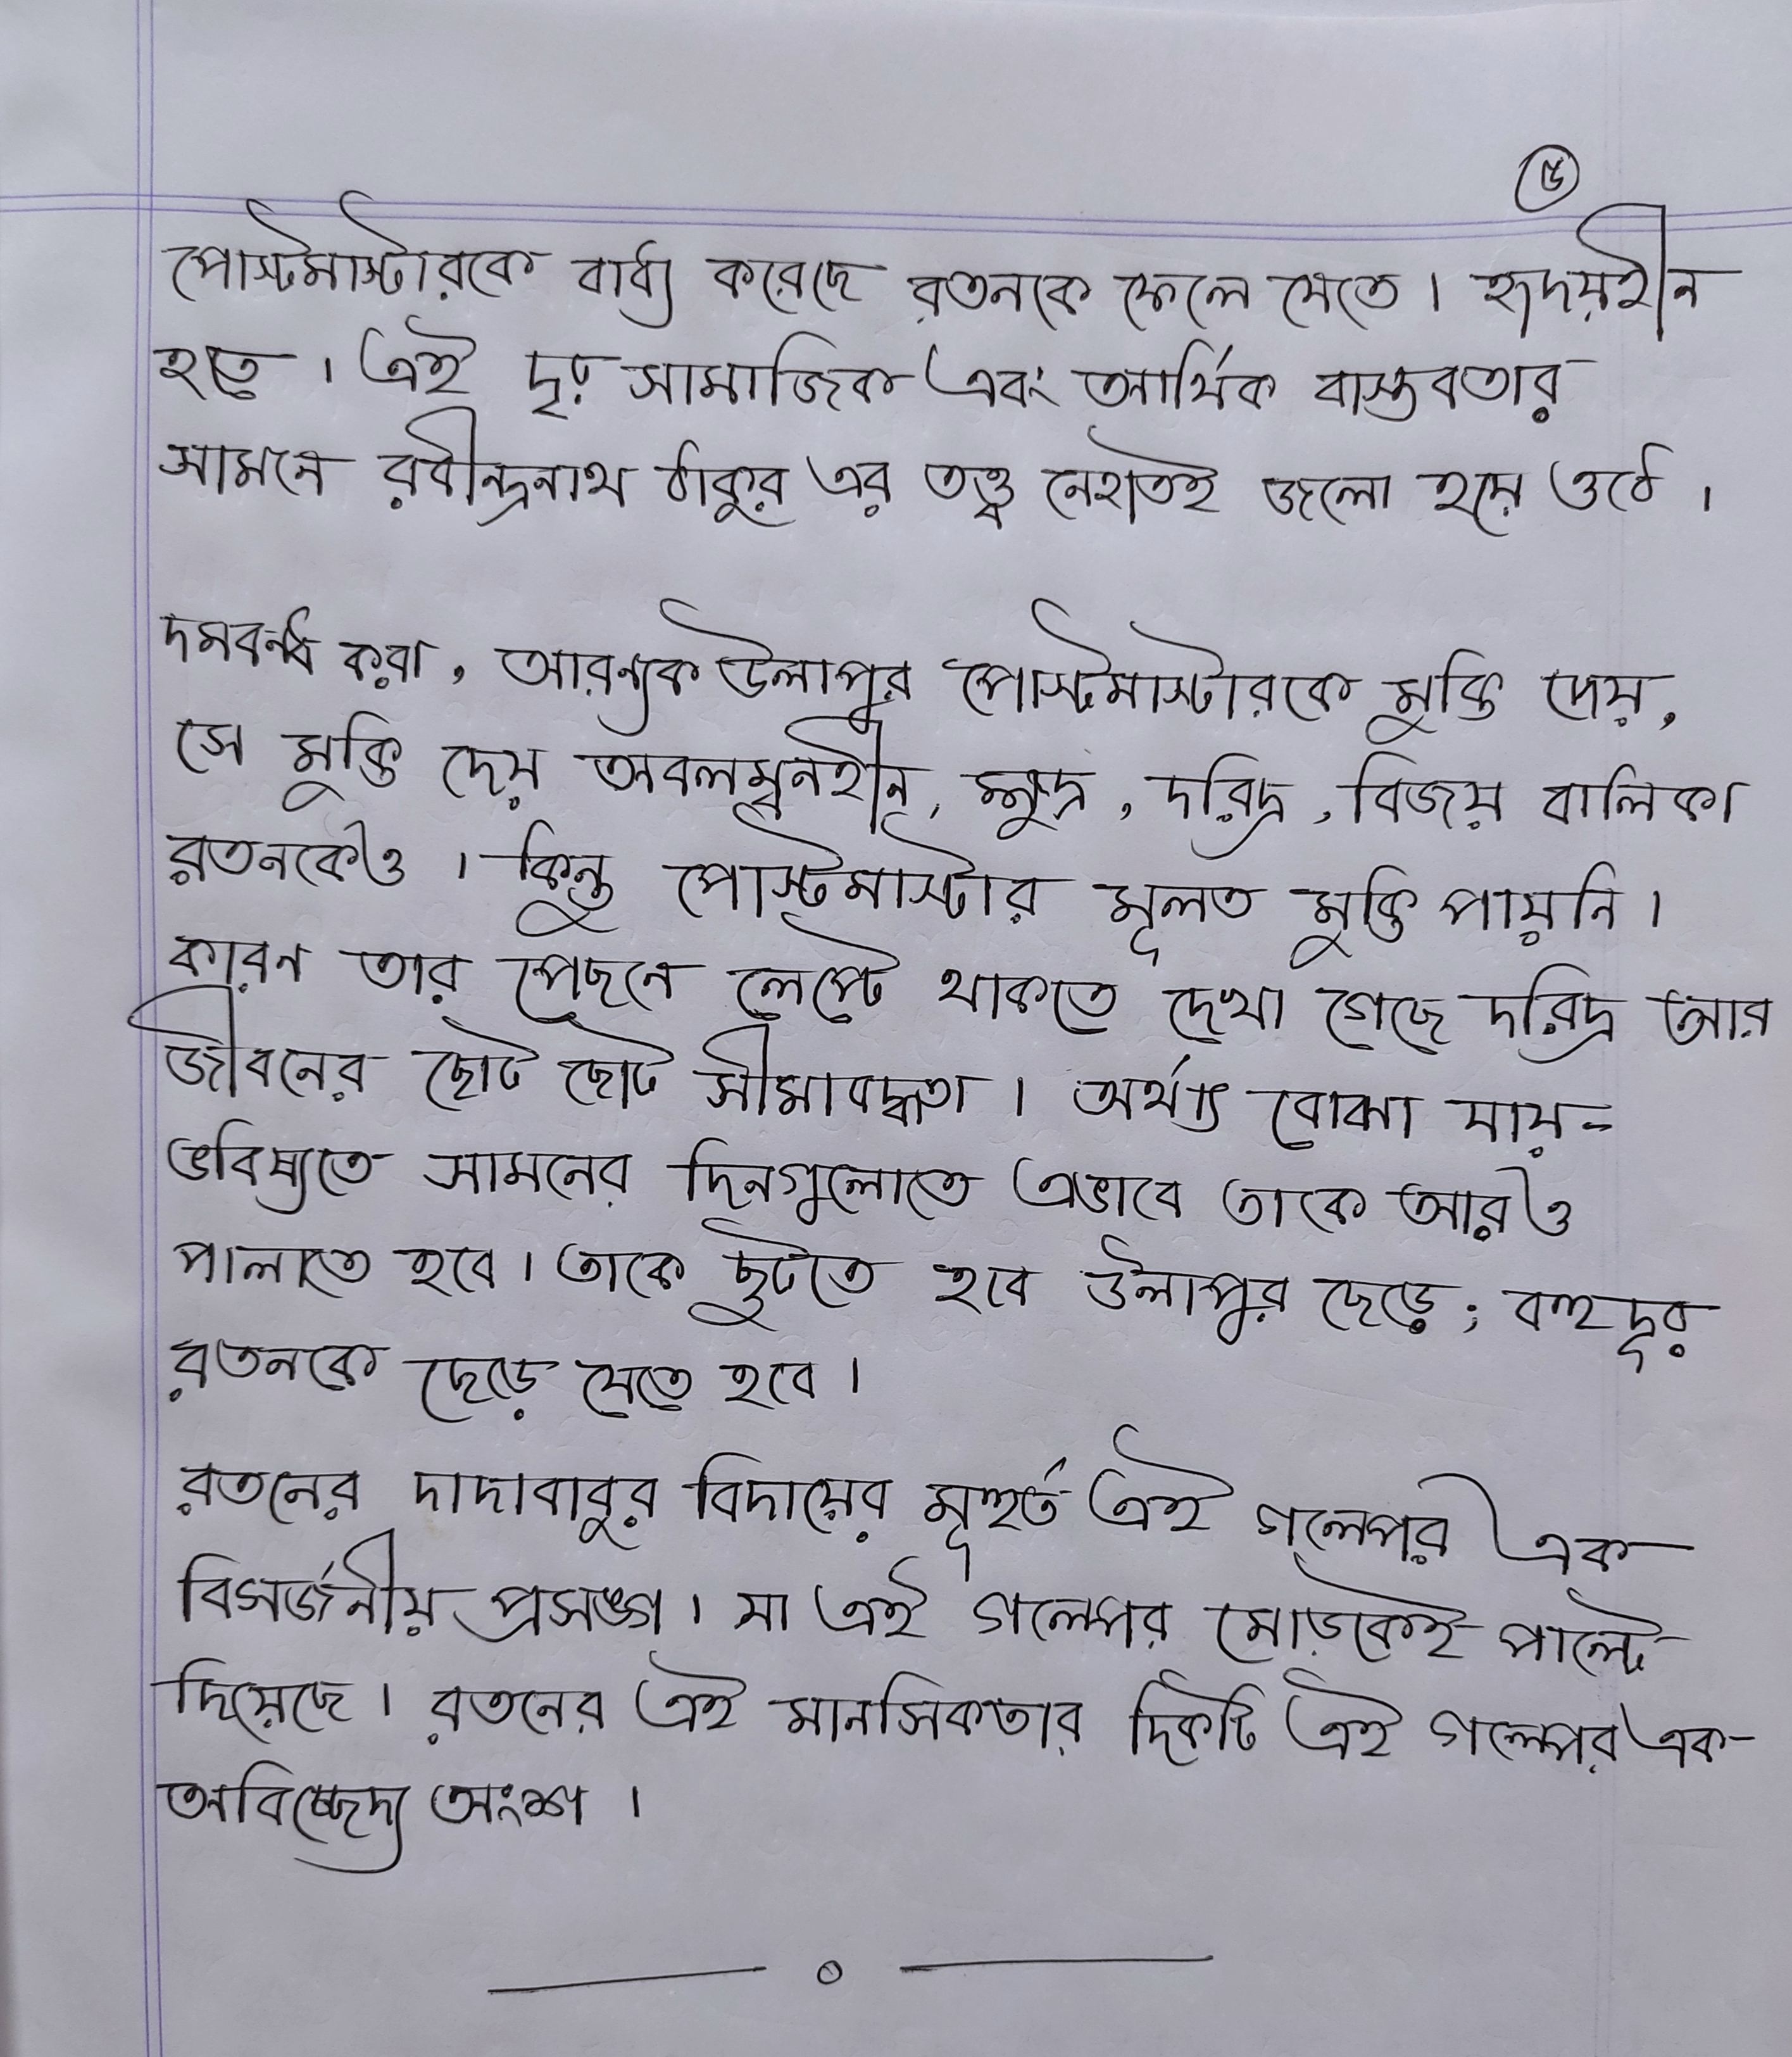 ৫
পোস্টমাস্টারকে বাধ্য করেছে রতনকে ফেলে যেতে। হৃদয়হীন
হতে। এই দৃঢ় সামাজিক এবং আর্থিক বাস্তবতার
সামনে রবীন্দ্রনাথ ঠাকুর এর তত্ত্ব নেহাতই জলো হয়ে ওঠে।
দমবন্ধ করা, আরন্যক উলাপুর পোস্টমাস্টারকে মুক্তি দেয়,
সে মুক্তি দেয় অবলম্বনহীন, ক্ষুদ্র, দরিদ্র, বিজয় বালিকা
রতনকেও। কিন্তু পোস্টমাস্টার মূলত মুক্তি পায়নি।
কারন তার পেছনে লেপ্টে থাকতে দেখা গেছে দরিদ্র আর
জীবনের ছোট ছোট সীমাবদ্ধতা। অর্থাৎ বোঝা যায়-
ভবিষ্যতে সামনের দিনগুলোতে এভাবে তাকে আরও
পালাতে হবে। তাকে ছুটতে হবে উলাপুর ছেড়ে; বহুদূর
রতনকে ছেড়ে যেতে হবে।
রতনের দাদাবাবুর বিদায়ের মূহুর্ত এই গল্পের এক
বিসর্জনীয় প্রসঙ্গ। যা এই গল্পের মোড়কেই পাল্টে
দিয়েছে। রতনের এই মানসিকতার দিকটি এই গল্পের এক
অবিচ্ছেদ্য অংশ।